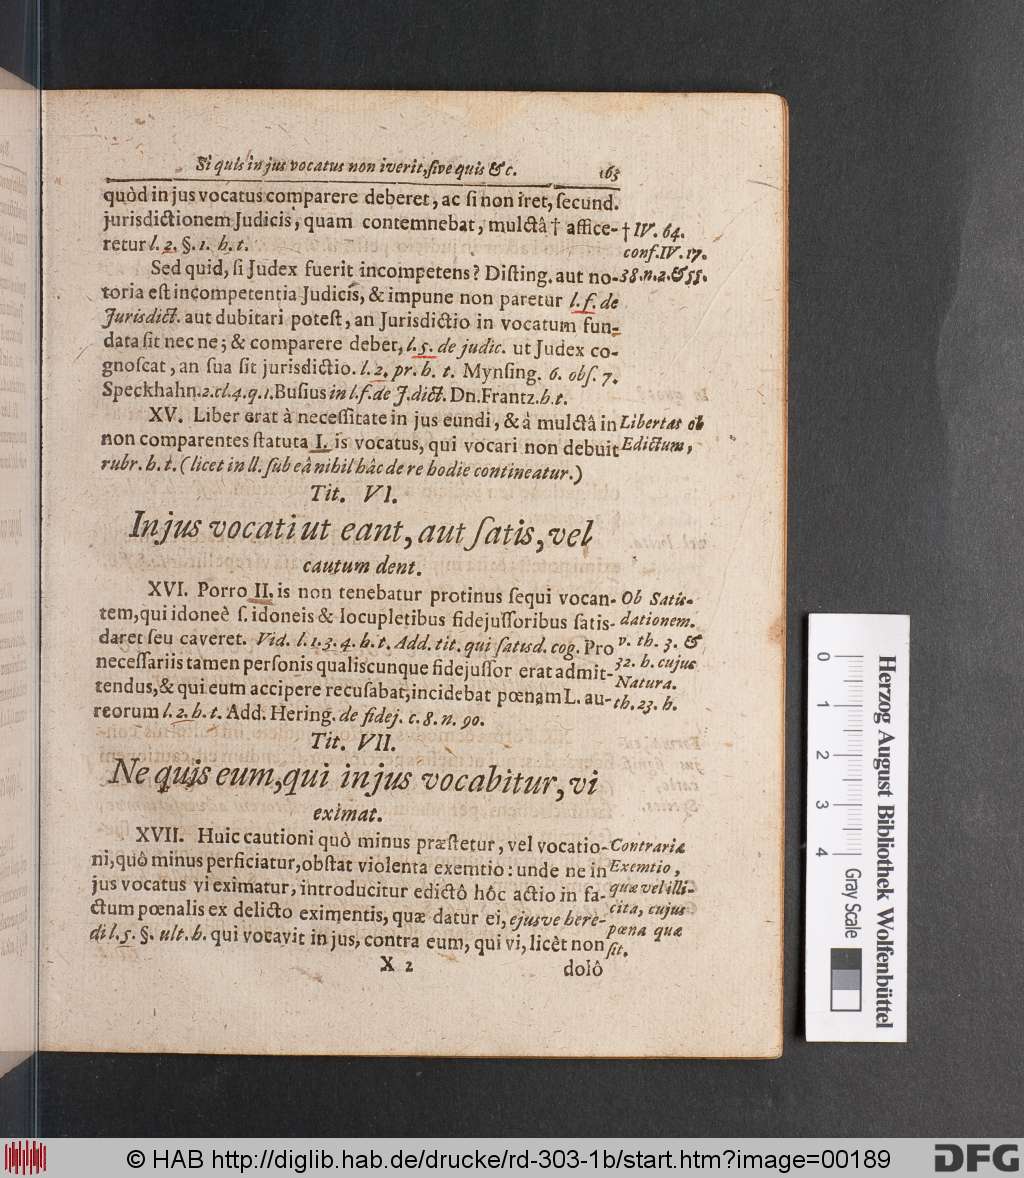 Si quis in jus vocatus non iverit, sive quis &c. 163
quòd in jus vocatus comparere deberet, ac si non iret, secund.
jurisdictionem Judicis, quam contemnebat, mulctâ † affice-
retur l. 2. §. 1. h. t.
† IV. 64.
conf. IV. 17.
38. n. 2. & 55.
Sed quid, si Judex fuerit incompetens? Disting. aut no-
toria est incompetentia Judicis, & impune non paretur l. f. de
Jurisdict. aut dubitari potest, an Jurisdictio in vocatum fun-
data sit nec ne; & comparere debet, l. 5. de judic. ut Judex co-
gnoscat, an sua sit jurisdictio. l. 2. pr. h. t. Mynsing. 6. obs. 7.
Speckhahn. 2. cl. 4. q. 1. Busius in l. f. de J. dict. Dn. Frantz. h. t.
XV. Liber erat à necessitate in jus eundi, & à mulctâ in
non comparentes statuta I. is vocatus, qui vocari non debuit
rubr. h. t. (licet in ll. sub eâ nihil hâc de re hodie contineatur.)
Libertas ob
Edictum,
Tit. VI.
In jus vocati ut eant, aut satis, vel
cautum dent.
XVI. Porro II. is non tenebatur protinus sequi vocan-
tem, qui idoneè s. idoneis & locupletibus fidejussoribus satis-
daret seu caveret. Vid. l. 1. 3. 4. h. t. Add. tit. qui satisd. cog. Pro
necessariis tamen personis qualiscunque fidejussor erat admit-
tendus, & qui eum accipere recusabat, incidebat pœnam L. au-
reorum l. 2. h. t. Add. Hering. de fidej. c. 8. n. 90.
Ob Satis-
dationem.
v. th. 3. &
32. h. cujus
Natura.
th. 23. h.
Tit. VII.
Ne quis eum, qui in jus vocabitur, vi
eximat.
XVII. Huic cautioni quò minus præstetur, vel vocatio-
ni, quô minus perficiatur, obstat violenta exemtio: unde ne in
jus vocatus vi eximatur, introducitur edictô hôc actio in fa-
ctum pœnalis ex delicto eximentis, quæ datur ei, ejusve here-
di l. 5. §. ult. h. qui vocavit in jus, contra eum, qui vi, licèt non
Contrariæ
Exemtio,
quæ vel illi-
cita, cujus
pœna quæ
sit.
X 2 dolô
0 1 2 3 4
Gray Scale
Herzog August Bibliothek Wolfenbüttel
© HAB http://diglib.hab.de/drucke/rd-303-1b/start.htm?image=00189
DFG